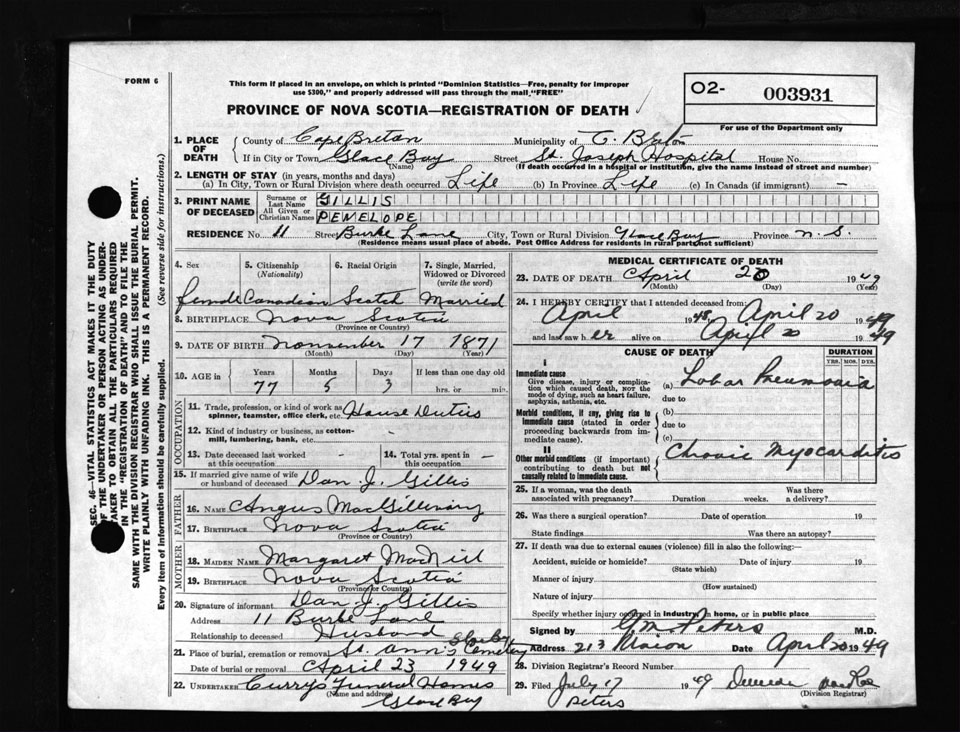 FORM 6
This form if placed in an envelope, on which is printed "Dominion Statistics—Free, penalty for improper
use $300," and properly addressed will pass through the mail "FREE"
PROVINCE OF NOVA SCOTIA—REGISTRATION OF DEATH
O2- 003931
For use of the Department only
1. PLACE OF DEATH County of Cape Breton Municipality of C. Breton
If in City or Town Glace Bay Street St. Joseph Hospital House No.
(Name) (If death occurred in a hospital or institution, give the name instead of street and number)
2. LENGTH OF STAY (in years, months and days)
(a) In City, Town or Rural Division where death occurred Life (b) In Province Life (c) In Canada (if immigrant) —
3. PRINT NAME OF DECEASED Surname or Last Name GILLIS
All Given or Christian Names PENELOPE
RESIDENCE No. 11 Street Burke Lane City, Town or Rural Division Glace Bay Province N. S.
(Residence means usual place of abode. Post Office Address for residents in rural parts not sufficient)
4. Sex 5. Citizenship (Nationality) 6. Racial Origin 7. Single, Married, Widowed or Divorced (write the word)
female Canadian Scotch Married
8. BIRTHPLACE Nova Scotia
(Province or Country)
9. DATE OF BIRTH November 17 1871
(Month) (Day) (Year)
10. AGE in Years Months Days If less than one day old
77 5 3 hrs. or min.
OCCUPATION
11. Trade, profession, or kind of work as spinner, teamster, office clerk, etc. House Duties
12. Kind of industry or business, as cotton-mill, lumbering, bank, etc. -
13. Date deceased last worked at this occupation - 14. Total yrs. spent in this occupation —
15. If married give name of wife or husband of deceased Dan. J. Gillis
FATHER
16. NAME Angus MacGillivray
17. BIRTHPLACE Nova Scotia
(Province or Country)
MOTHER
18. MAIDEN NAME Margaret MacNeil
19. BIRTHPLACE Nova Scotia
(Province or Country)
20. Signature of informant Dan J. Gillis
Address 11 Burke Lane
Relationship to deceased Husband
21. Place of burial, cremation or removal St. Ann's Cemetery
Date of burial or removal April 23 1949
22. UNDERTAKER Curry's Funeral Homes
(Name and address)
Glace Bay
MEDICAL CERTIFICATE OF DEATH
23. DATE OF DEATH April 20 1949
(Month) (Day) (Year)
24. I HEREBY CERTIFY that I attended deceased from
April 1948, April 20 1949
and last saw her alive on April 20 1949
CAUSE OF DEATH DURATION
YRS. MOS. DYS.
I
Immediate cause
Give disease, injury or complication which caused death, NOT the mode of dying, such as heart failure, asphyxia, asthenia, etc.
(a) Lobar Pneumonia
due to
Morbid conditions, if any, giving rise to immediate cause (stated in order proceeding backwards from immediate cause).
(b)
due to
(c)
II
Other morbid conditions (if important) contributing to death but not causally related to immediate cause.
Chronic Myocarditis
25. If a woman, was the death associated with pregnancy? Duration weeks. Was there a delivery?
26. Was there a surgical operation? Date of operation 19
State findings Was there an autopsy?
27. If death was due to external causes (violence) fill in also the following:—
Accident, suicide or homicide? Date of injury 19
(State which)
Manner of injury
(How sustained)
Nature of injury
Specify whether injury occurred in industry, in home, or in public place
Signed by Peters M.D.
Address 213 Union Date April 20 1949
28. Division Registrar's Record Number
29. Filed July 17 1949
(Division Registrar)
Peters
SEC. 46—VITAL STATISTICS ACT MAKES IT THE DUTY
OF THE UNDERTAKER OR PERSON ACTING AS UNDER-
TAKER TO OBTAIN ALL THE PARTICULARS REQUIRED
IN THE "REGISTRATION OF DEATH" AND TO FILE THE
SAME WITH THE DIVISION REGISTRAR WHO SHALL ISSUE THE BURIAL PERMIT.
WRITE PLAINLY WITH UNFADING INK. THIS IS A PERMANENT RECORD.
Every item of information should be carefully supplied. (See reverse side for instructions.)